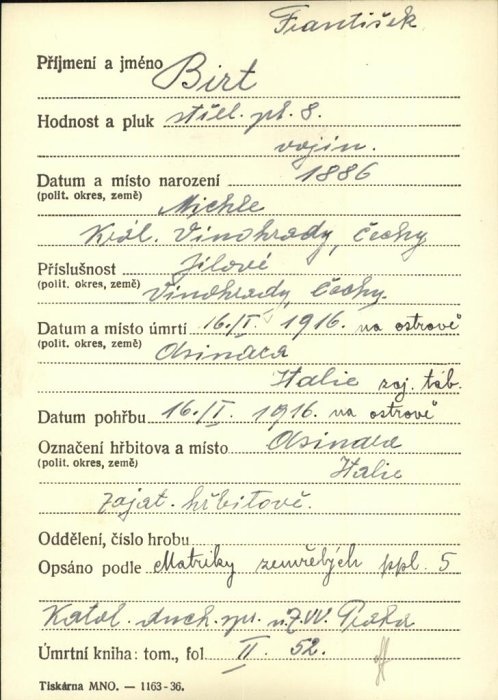 František
Příjmení a jméno Birt
Hodnost a pluk střel. pl. 8.
vojín.
Datum a místo narození 1886
(polit. okres, země) Michle
Král. Vinohrady, Čechy
Příslušnost Jílové
(polit. okres, země) Vinohrady, Čechy.
Datum a místo úmrtí 16./I. 1916. na ostrově
(polit. okres, země) Asinara
Italie zaj. táb.
Datum pohřbu 16./I. 1916. na ostrově
Označení hřbitova a místo Asinara
(polit. okres, země) Italie
zajat. hřbitově.
Oddělení, číslo hrobu
Opsáno podle Matriky zemřelých ppl. 5
Katol. duch. spr. Praha
Úmrtní kniha: tom., fol. II. 52.
Tiskárna MNO. — 1163-36.